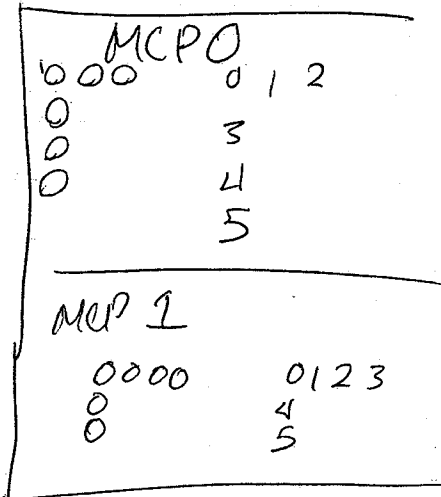 MCP0
000 0 1 2
0
0 3
0 4
5
MCP 1
0000 0123
0 4
0 5